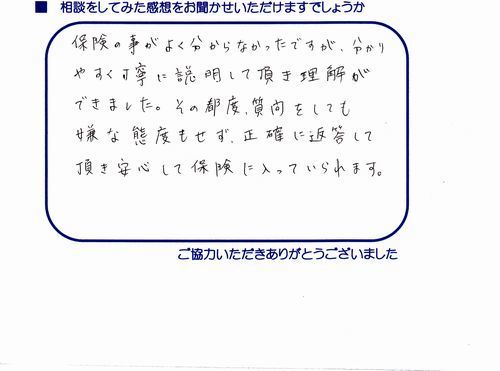 ■ 相談をしてみた感想をお聞かせいただけますでしょうか
保険の事がよく分からなかったですが、分かり
やすく丁寧に説明して頂き理解が
できました。その都度、質問をしても
嫌な態度もせず、正確に返答して
頂き安心して保険に入っていられます。
ご協力いただきありがとうございました